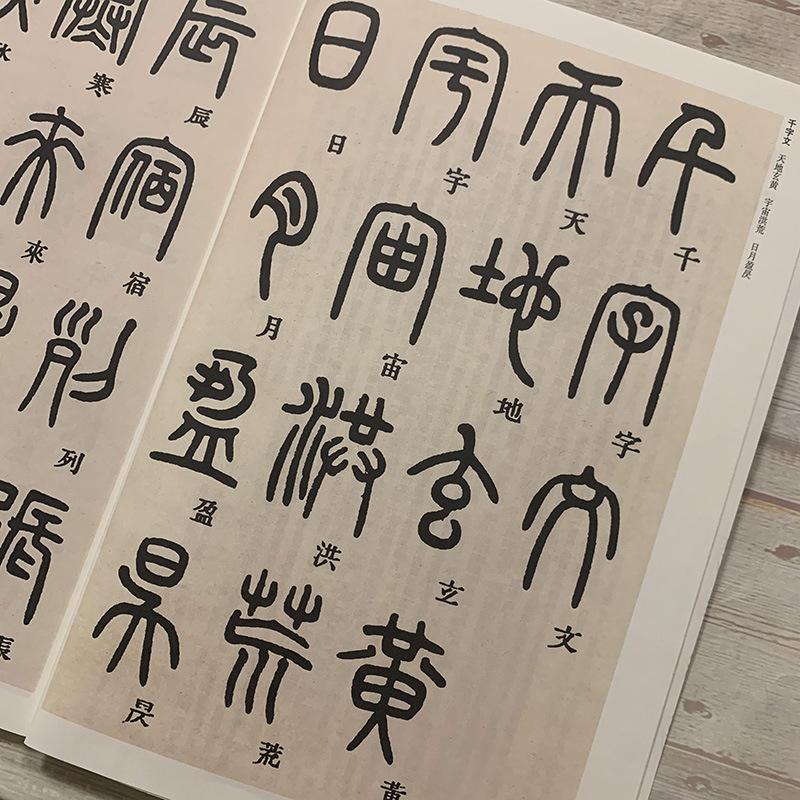 千字文 天地玄黄 宇宙洪荒 日月盈昃
千字文
天地玄黃
宇宙洪荒
日月盈昃
辰宿列張
寒來